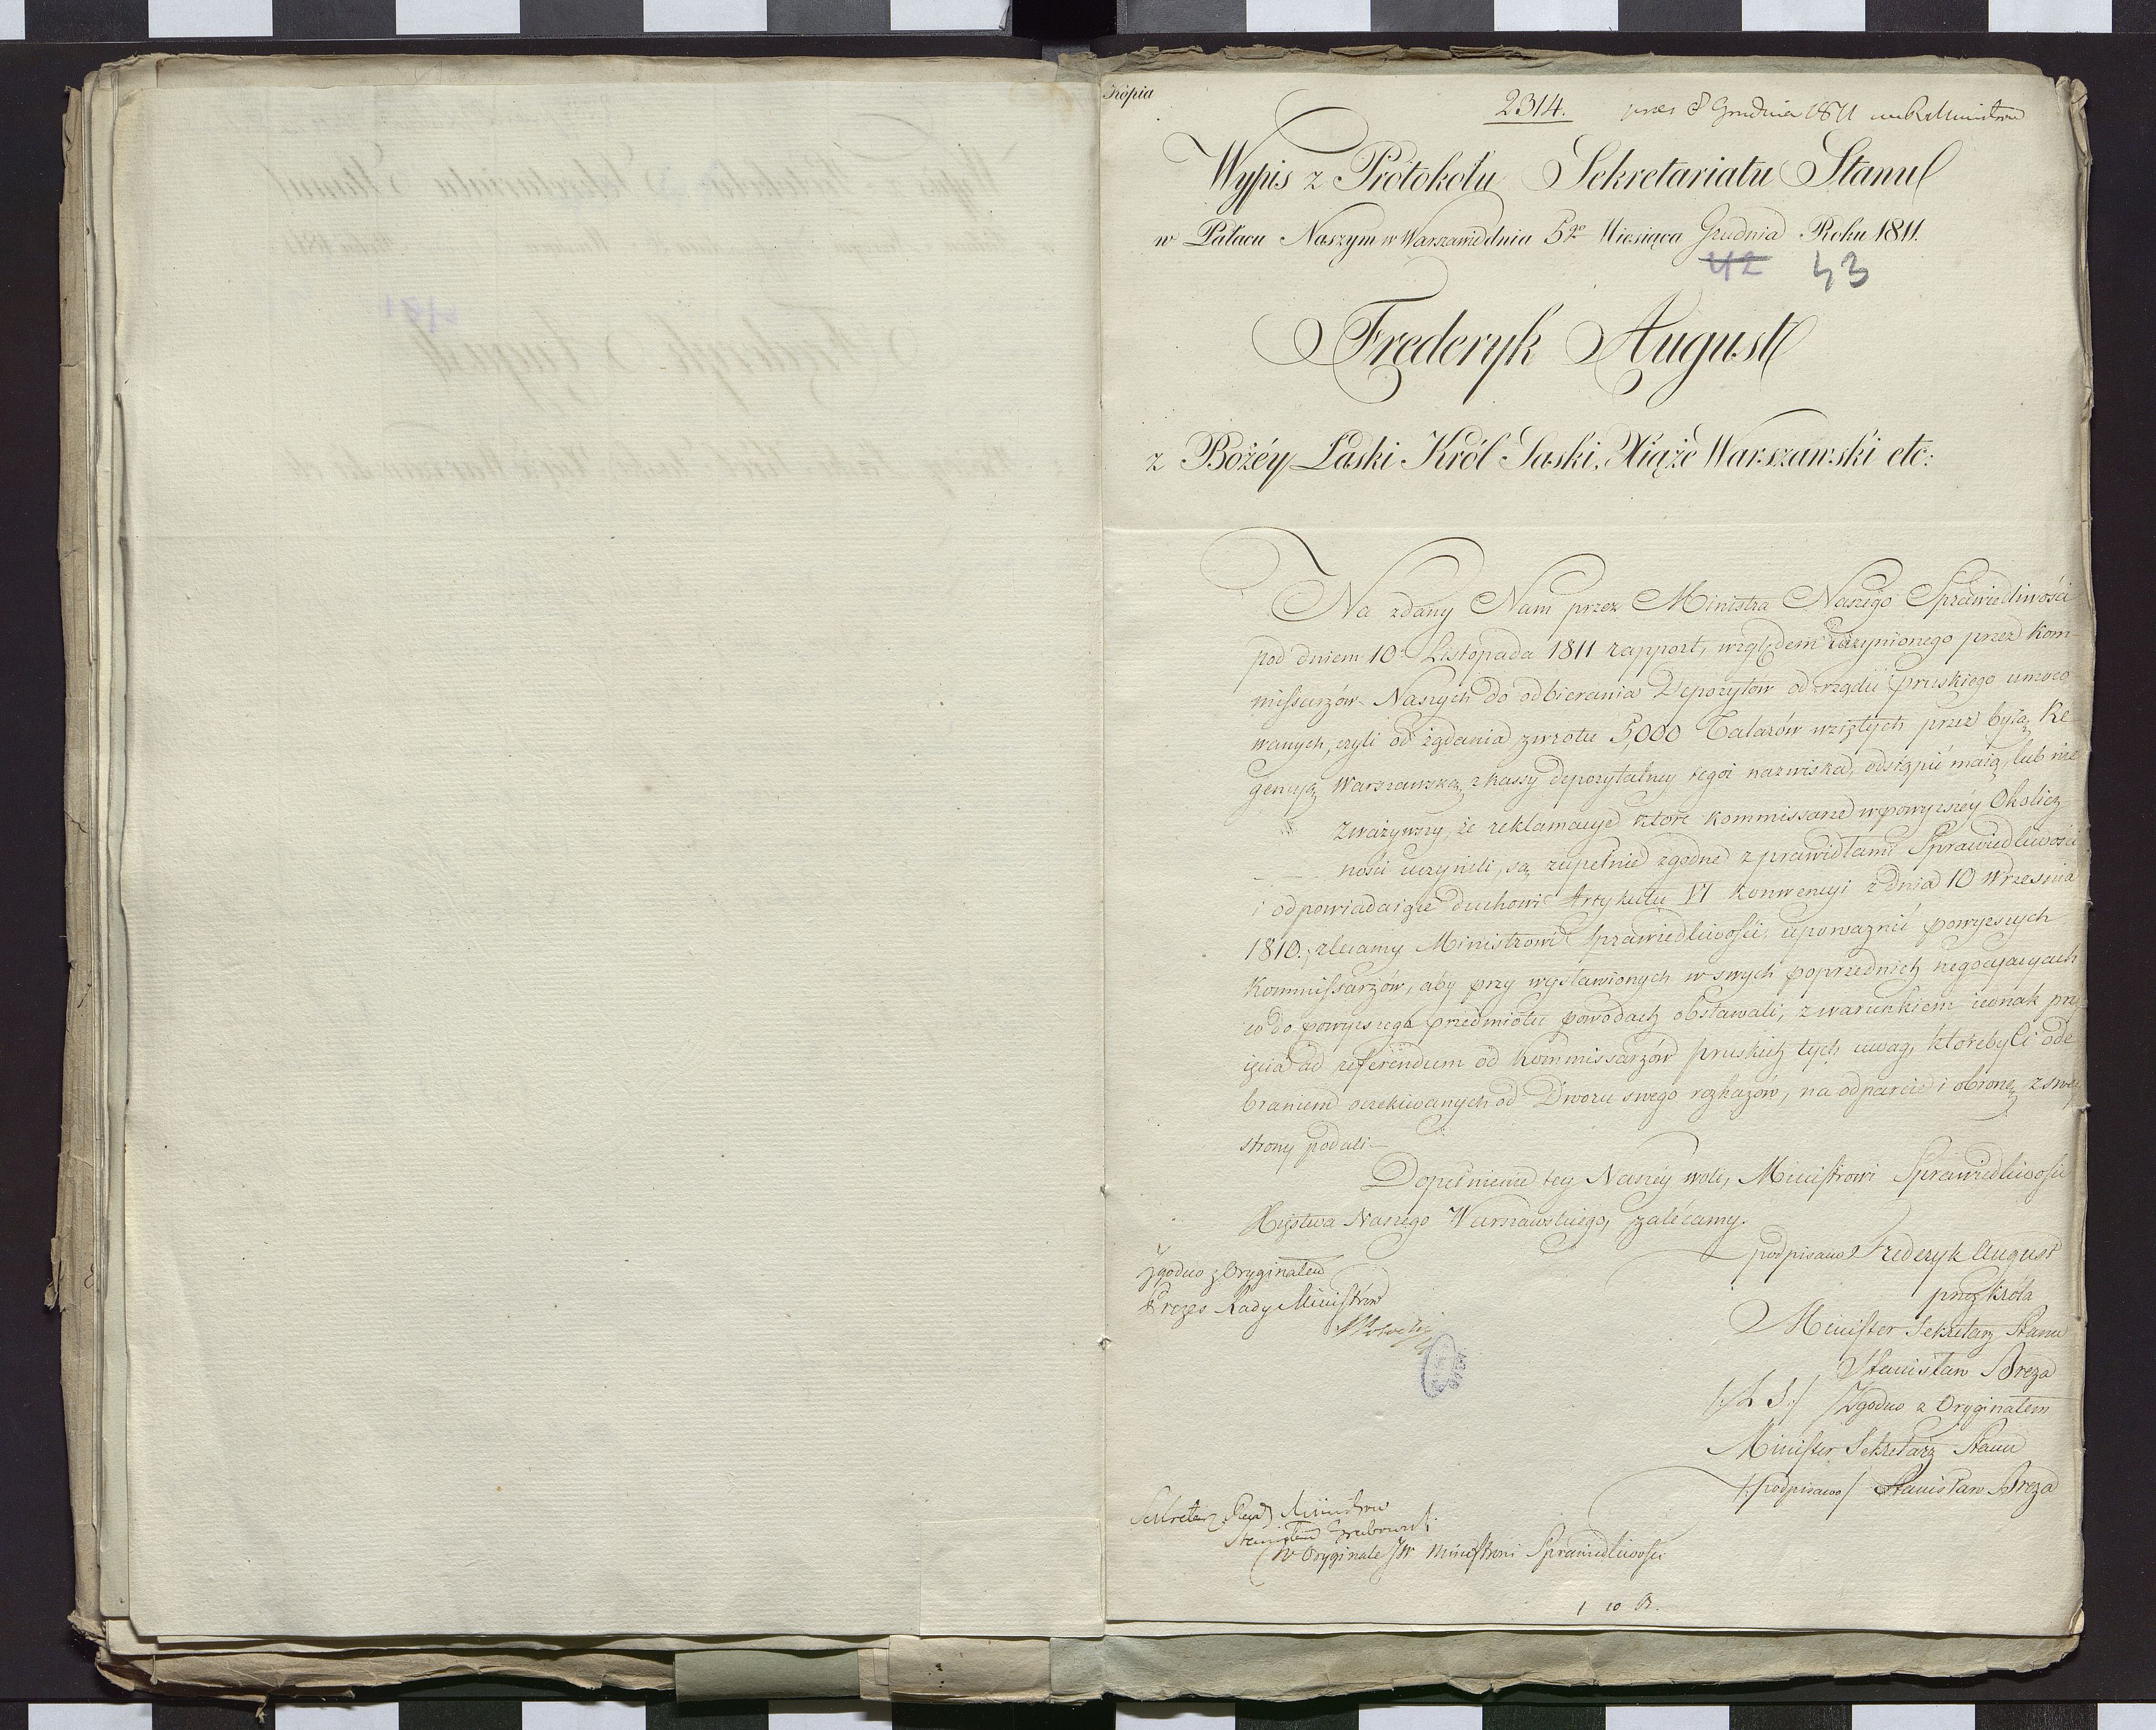 Kopia
2314. pres 8 Grudnia 1811 w R Ministrów
Wypis z Protokołu Sekretariatu Stanu
w Pałacu Naszym w Warszawie dnia 5go Miesiąca Grudnia Roku 1811.
42 43
Frederyk August
z Bożéy Łaski Król Saski, Xiąże Warszawski etc:
Na zdany Nam przez Ministra Naszego Sprawiedliwości
pod dniem 10. Listopada 1811 rapport, względem uczynionego przez Kom-
missarzów Naszych do odbierania Depozytów od rządu pruskiego umoco
wanych, czyli od żądania zwrotu 5,000 Talarów wziętych przez byłą Re-
gencyą Warszawską z kassy depozytalney tegoż nazwiska, odstąpić maią, lub nie
Zważywszy, że reklamacye które Kommissarze w powyższéy Okolicz
ności uczynili, są zupełnie zgodne z prawidłami Sprawiedliwości
i odpowiadaiące duchowi Artykułu VI Konwencyi z dnia 10 Września
1810., zlecamy Ministrowi Sprawiedliwości upoważnić powyższych
Kommissarzów, aby przy wystawionych w swych poprzednich negocyacyach
co do powyższego przedmiotu powodach obstawali, z warunkiem iednak przy
ięcia ad referendum od Kommissarzów pruskich tych uwag, któreby ci ode
braniem oczekiwanych od Dworu swego rozkazów, na odparcie i obronę z swey
strony podali-
Dopełnienie tey Naszéy woli, Ministrowi Sprawiedliwości
Xięstwa Naszego Warszawskiego, zalécamy.
podpisano Frederyk August
Zgodno z Oryginałem
przez Króla
Prezes Rady Ministrów
Minister Sekretarz Stanu
Stanisław Breza
/:L S:/ Zgodno z Oryginałem
Minister Sekretarz Stanu
/:podpisano/ Stanisław Breza
Sekretarz Rady Ministrów
Stanisław Grabowski
W Oryginale JW Ministrowi Sprawiedliwości